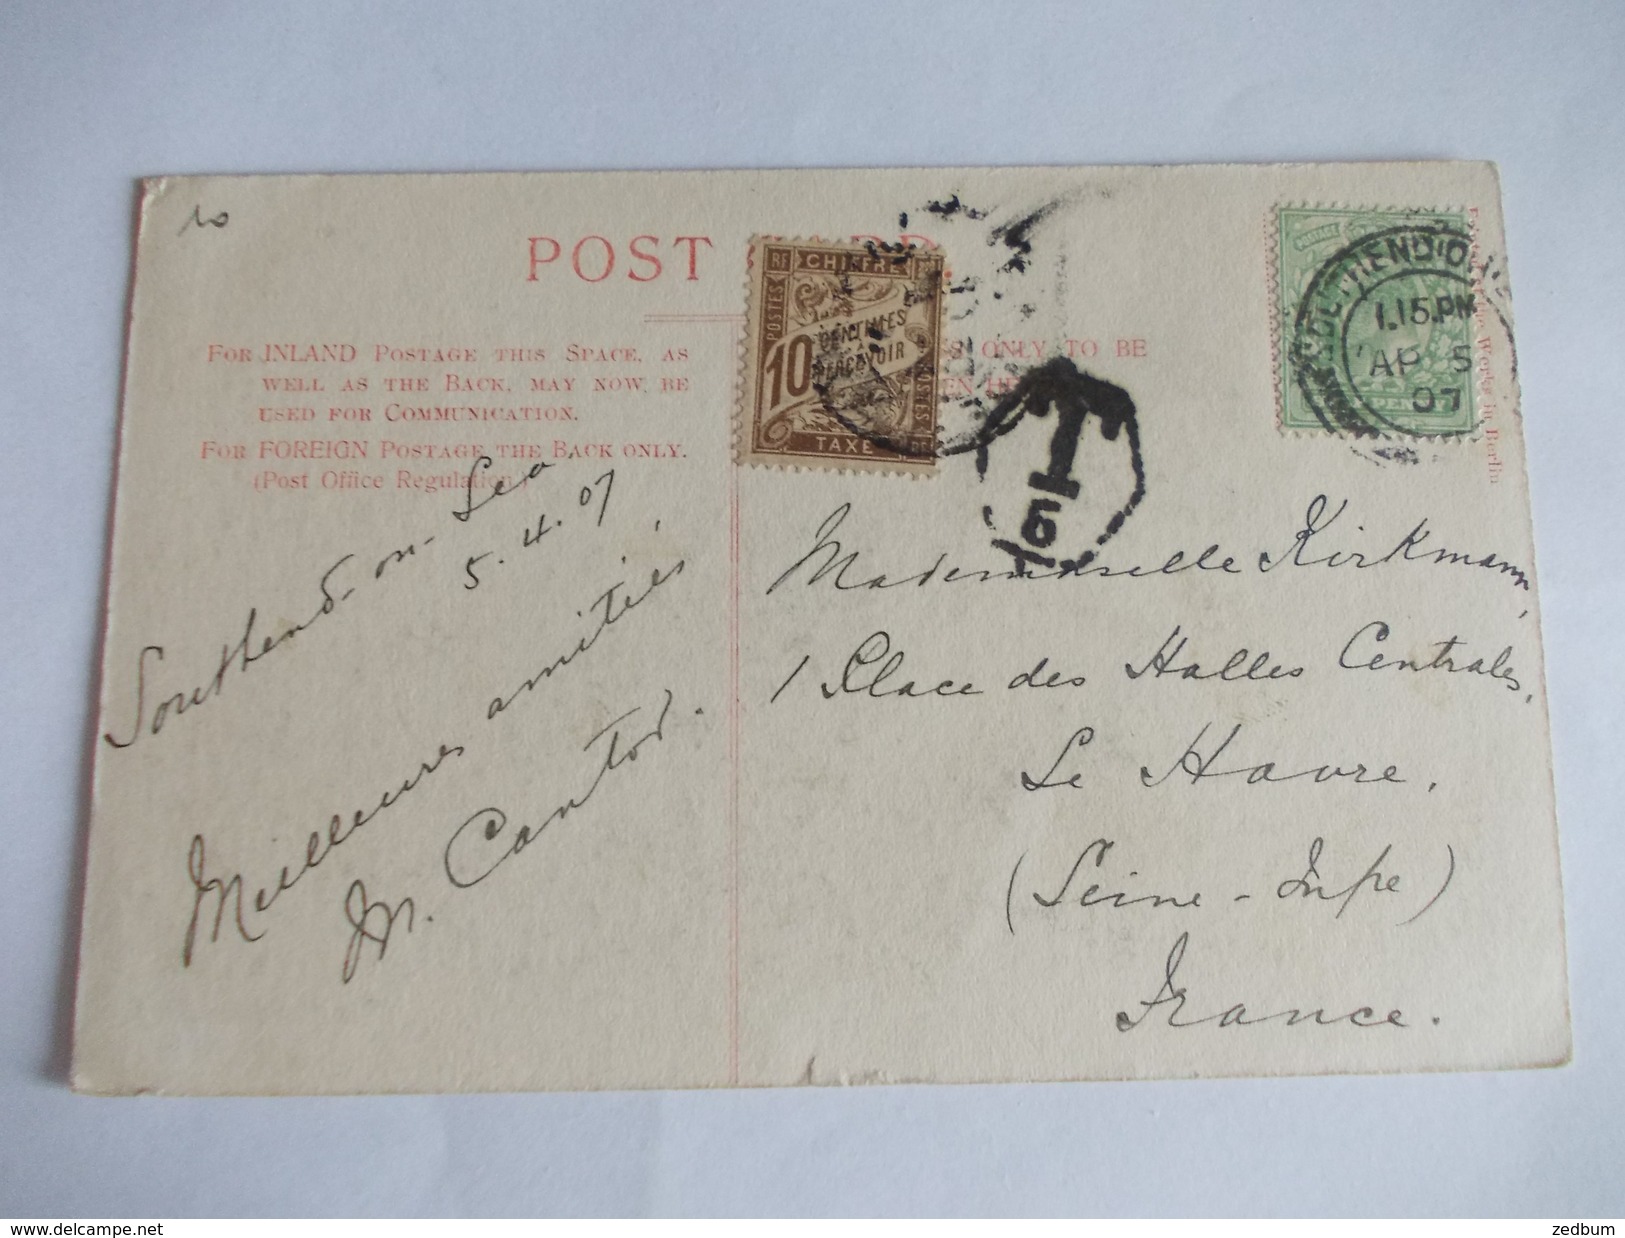 10
POST
FOR INLAND POSTAGE THIS SPACE, AS
WELL AS THE BACK, MAY NOW BE
USED FOR COMMUNICATION.
FOR FOREIGN POSTAGE THE BACK ONLY.
(Post Office Regulation.)
ONLY TO BE
RF CHIFFRE
POSTES
10 CENTIMES
À PERCEVOIR
TAXE RF
T
6
POSTAGE
SOUTHEND ON
1.15.PM
AP 5
07
Works in Berlin
Southend-on-Sea
5.4.07
Meilleures amitiés
M. Cantor.
Mademoiselle Kirkmann,
1 Place des Halles Centrales,
Le Havre.
(Seine-Infre)
France.
delcampe.net
zedbum